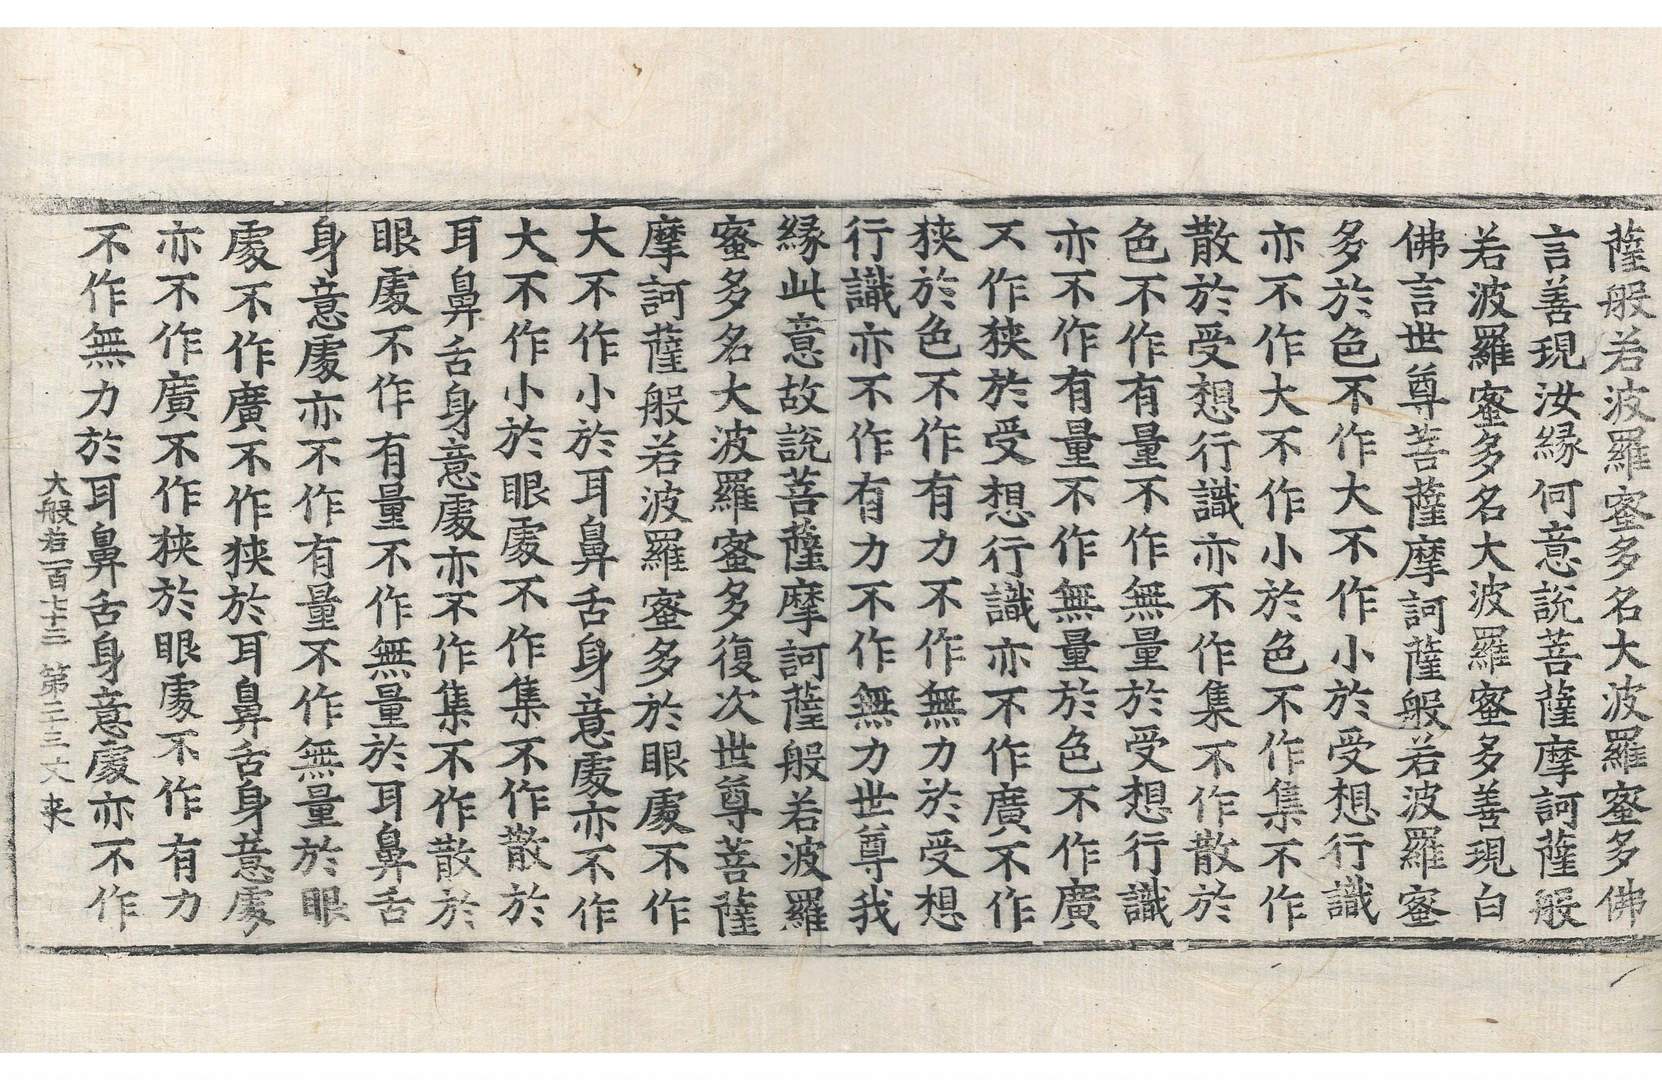 薩般若波羅蜜多名大波羅蜜多佛
言善現汝緣何意說菩薩摩訶薩般
若波羅蜜多名大波羅蜜多善現白
佛言世尊菩薩摩訶薩般若波羅蜜
多於色不作大不作小於受想行識
亦不作大不作小於色不作集不作
散於受想行識亦不作集不作散於
色不作有量不作無量於受想行識
亦不作有量不作無量於色不作廣
不作狹於受想行識亦不作廣不作
狹於色不作有力不作無力於受想
行識亦不作有力不作無力世尊我
緣此意故說菩薩摩訶薩般若波羅
蜜多名大波羅蜜多復次世尊菩薩
摩訶薩般若波羅蜜多於眼處不作
大不作小於耳鼻舌身意處亦不作
大不作小於眼處不作集不作散於
耳鼻舌身意處亦不作集不作散於
眼處不作有量不作無量於耳鼻舌
身意處亦不作有量不作無量於眼
處不作廣不作狹於耳鼻舌身意處
亦不作廣不作狹於眼處不作有力
不作無力於耳鼻舌身意處亦不作
大般若一百七十三 第二十三丈 夾